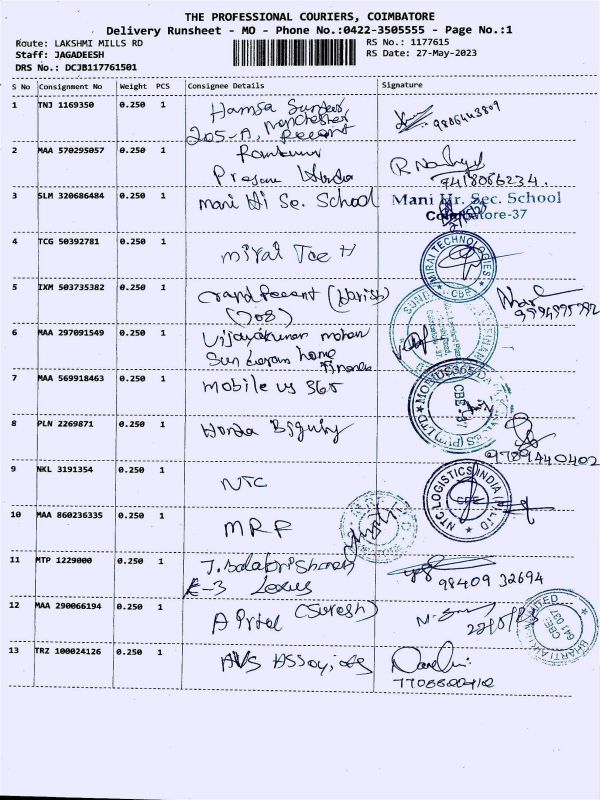 THE PROFESSIONAL COURIERS, COIMBATORE
Delivery Runsheet - MO - Phone No.:0422-3505555 - Page No.:1
Route: LAKSHMI MILLS RD
RS No.: 1177615
Staff: JAGADEESH
RS Date: 27-May-2023
DRS No.: DCJB117761501
S No Consignment No Weight PCS Consignee Details Signature
1 TNJ 1169350 0.250 1 Hamsa
Manchester
205-A, Recent
9886443809
2 MAA 570295057 0.250 1
9418086234.
3 SLM 320686484 0.250 1 Mani Hi Se. School Mani Hr. Sec. School
Coimbatore-37
4 TCG 50392781 0.250 1 miral Tec H
MIRAI TECHNOLOGIES
CBE
5 IXM 503735382 0.250 1 Grand Recent (Harish)
(708)
6 MAA 297091549 0.250 1 Vijayakumar mohan
Sundaram home
Finance
7 MAA 569918463 0.250 1 mobile us 365
CBE-37
8 PLN 2269871 0.250 1 Honda
9789440402
9 NKL 3191354 0.250 1 NTC
NTC LOGISTICS INDIA (P) LTD
CBE
10 MAA 860236335 0.250 1 MRF
11 MTP 1229000 0.250 1 T. Balakrishnan
E-3 Lexus
98409 32694
12 MAA 290066194 0.250 1 Airtel (Suresh)
BHARTI AIRTEL LIMITED
CBE
641 037
13 TRZ 100024126 0.250 1 AVS